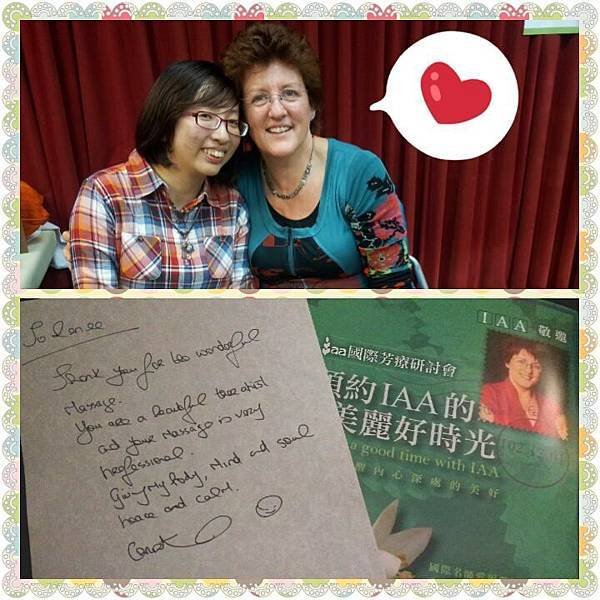 To Renee
Thank you for the wonderful
Massage.
You are a beautiful therapist
and your Massage is very
Professional.
Giving my Body, Mind and Soul
peace and calm.
IAA 敬邀
iaa國際芳療研討會
預約IAA的
美麗好時光
a good time with IAA
醒內心深處的美好
國際名師愛